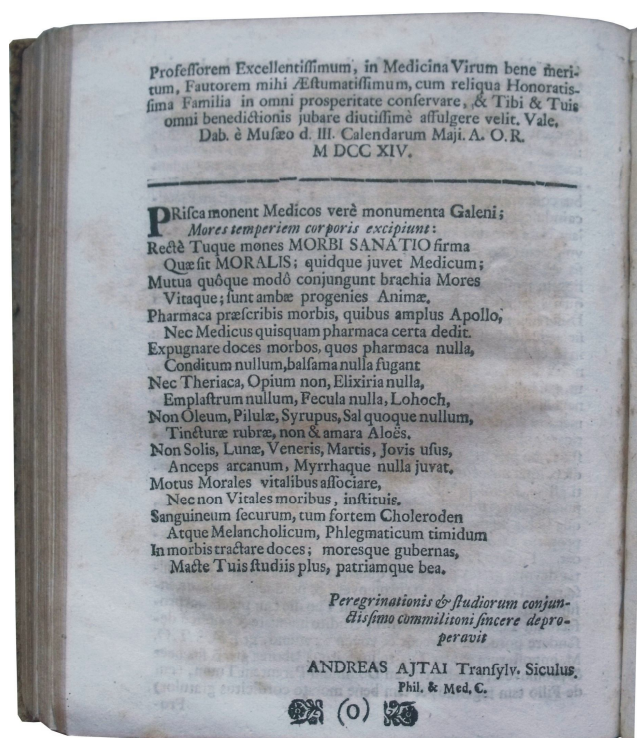 Profeſſorem Excellentiſſimum, in Medicina Virum bene meri-
tum, Fautorem mihi Æſtumatiſſimum, cum reliqua Honoratiſ-
ſima Familia in omni proſperitate conſervare, & Tibi & Tuis
omni benedictionis jubare diutiſſimè aſſulgere velit. Vale,
Dab. è Muſæo d. III. Calendarum Maji. A. O. R.
M DCC XIV.
PRiſca monent Medicos verè monumenta Galeni;
Mores temperiem corporis excipiunt:
Rectè Tuque mones MORBI SANATIO firma
Quæ ſit MORALIS; quidque juvet Medicum;
Mutua quôque modô conjungunt brachia Mores
Vitaque; ſunt ambæ progenies Animæ.
Pharmaca præſcribis morbis, quibus amplus Apollo,
Nec Medicus quisquam pharmaca certa dedit.
Expugnare doces morbos, quos pharmaca nulla,
Conditum nullum, balſama nulla fugant
Nec Theriaca, Opium non, Elixiria nulla,
Emplaſtrum nullum, Fecula nulla, Lohoch,
Non Oleum, Pilulæ, Syrupus, Sal quoque nullum,
Tincturæ rubræ, non & amara Aloës.
Non Solis, Lunæ, Veneris, Martis, Jovis uſus,
Anceps arcanum, Myrrhaque nulla juvat.
Motus Morales vitalibus aſſociare,
Nec non Vitales moribus, inſtituis.
Sanguineum ſecurum, tum fortem Choleroden
Atque Melancholicum, Phlegmaticum timidum
In morbis tractare doces; moresque gubernas,
Macte Tuis ſtudiis plus, patriamque bea.
Peregrinationis & ſtudiorum conjun-
ctiſſimo commilitoni ſincere depro-
peravit
ANDREAS AJTAI Tranſylv. Siculus.
Phil. & Med. C.
(O)